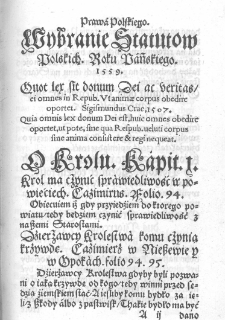 Prawá Polskiego.
Wybránie Statutow
Polskich. Roku Páńskiego.
1559.
Quot lex sit donum Dei ac veritas,
ei omnes in Repub. Vt animæ corpus obedire
oportet. Sigismundus Crac. 1507.
Quia omnis lex donum Dei est, huic omnes obedire
oportet, ut pote, sine qua Respub. veluti corpus
sine anima consistere & regi nequeat.
O Krolu. Kápit. 1.
Krol ma czynić spráwiedliwość w po-
wiećiech. Cázimirus. Folio. 94.
Obiecuiem iż gdy przyiedziem do ktorego po-
wiátu: tedy będziem czynić spráwiedliwość z
nászemi Stárostámi.
Dzierżawcy Krolestwá komu czynią
krzywdę. Cázimierz w Nieszewie y
w Opokách. folio 94. 95.
Dzierżawcy Krolestwá gdyby byli pozwá-
ni o iáką krzywdę od kogo: tedy winni przed sę-
dzią ziemskiem stać: A iesliby komu bydło zá ię-
li z szkody álbo z pástwisk: Tákie bydło ma być
A ij dano